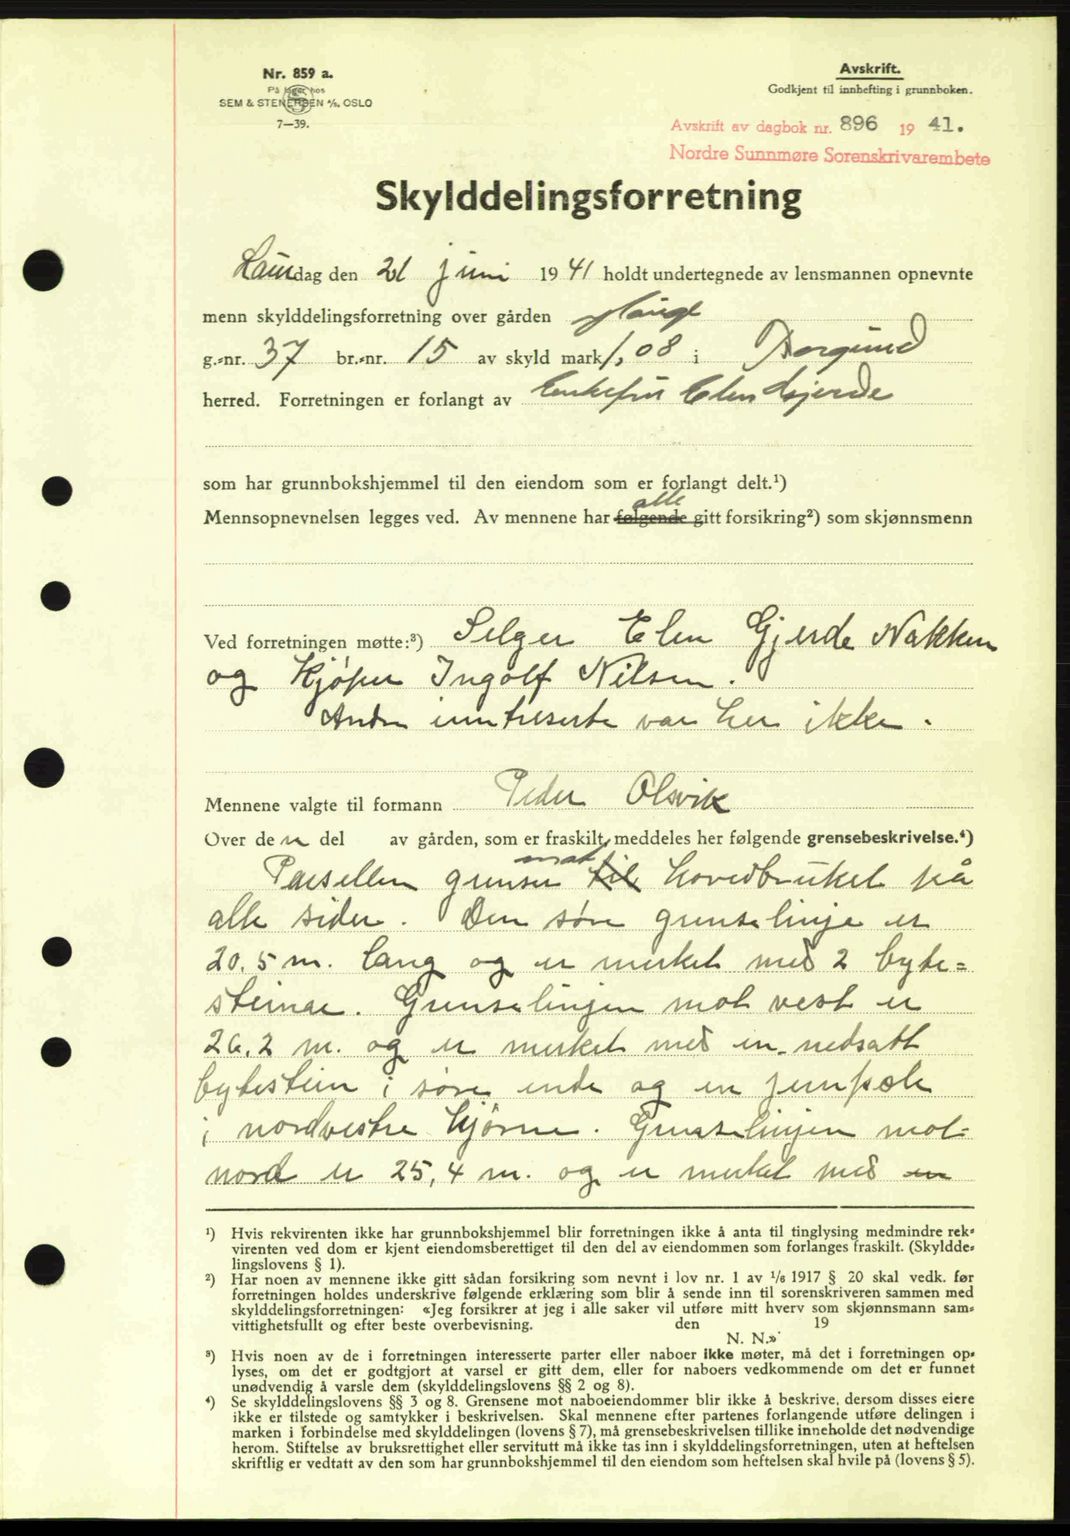 Nr. 859 a.
På lager hos
SEM & STENERSEN A/S, OSLO
7—39.
Avskrift.
Godkjent til innhefting i grunnboken.
Avskrift av dagbok nr. 896 19 41.
Nordre Sunnmøre Sorenskrivarembete
Skylddelingsforretning
Laurdag den 21 juni 1941 holdt undertegnede av lensmannen opnevnte
menn skylddelingsforretning over gården Hauge
g.-nr. 37 br.-nr. 15 av skyld mark 1,08 i Borgund
herred. Forretningen er forlangt av Enkefru Elen Gjerde
som har grunnbokshjemmel til den eiendom som er forlangt delt.¹)
alle
Mennsopnevnelsen legges ved. Av mennene har følgende gitt forsikring²) som skjønnsmenn
Ved forretningen møtte:³) Selger Elen Gjerde Nakken
og kjøper Ingolf Nilsen.
Andre interesserte var her ikke.
Mennene valgte til formann Peder Olsvik
Over den del av gården, som er fraskilt, meddeles her følgende grensebeskrivelse.⁴)
mot
Parsellen grenser til hovedbruket på
alle sider. Den søre grenselinje er
20,5 m. lang og er merket med 2 byte=
steinar. Grenselinjen mot vest er
26,2 m. og er merket med en nedsatt
bytestein i søre ende og en jernpæle
i nordvestre hjørne. Grenselinjen mot
nord er 25,4 m. og er merket med en
¹) Hvis rekvirenten ikke har grunnbokshjemmel blir forretningen ikke å anta til tinglysing medmindre rek-
virenten ved dom er kjent eiendomsberettiget til den del av eiendommen som forlanges fraskilt. (Skyldde-
lingslovens § 1).
²) Har noen av mennene ikke gitt sådan forsikring som nevnt i lov nr. 1 av 1/6 1917 § 20 skal vedk. før
forretningen holdes underskrive følgende erklæring som blir å sende inn til sorenskriveren sammen med
skylddelingsforretningen: «Jeg forsikrer at jeg i alle saker vil utføre mitt hverv som skjønnsmann sam-
vittighetsfullt og efter beste overbevisning. den 19
N. N.»
³) Hvis noen av de i forretningen interesserte parter eller naboer ikke møter, må det i forretningen op-
lyses, om det er godtgjort at varsel er gitt dem, eller for naboers vedkommende om det er funnet
unødvendig å varsle dem (skylddelingslovens §§ 2 og 8).
⁴) Se skylddelingslovens §§ 3 og 8. Grensene mot naboeiendommer blir ikke å beskrive, dersom disses eiere
ikke er tilstede og samtykker i beskrivelsen. Skal mennene efter partenes forlangende utføre delingen i
marken i forbindelse med skylddelingen (lovens § 7), må grensebeskrivelsen tillike inneholde det nødvendige
herom. Stiftelse av bruksrettighet eller servitutt må ikke tas inn i skylddelingsforretningen, uten at heftelsen
skriftlig er vedtatt av den som har grunnbokshjemmel til den eiendom som heftelsen skal hvile på (lovens § 5).